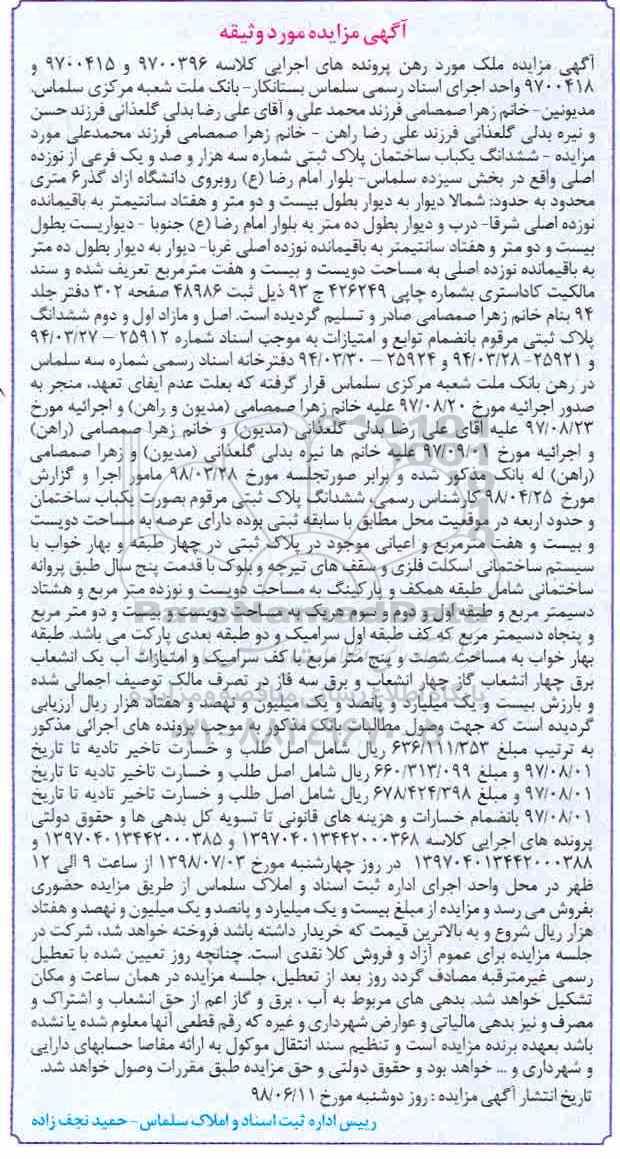 آگهی مزایده مورد وثیقه
آگهی مزایده ملک مورد رهن پرونده های اجرایی کلاسه ۹۷۰۰۳۹۶ و ۹۷۰۰۴۱۵ و
۹۷۰۰۴۱۸ واحد اجرای اسناد رسمی سلماس بستانکار- بانک ملت شعبه مرکزی سلماس،
مدیونین- خانم زهرا صمصامی فرزند محمد علی و آقای علی رضا بدلی گلعذانی فرزند حسن
و نیره بدلی گلعذانی فرزند علی رضا راهن - خانم زهرا صمصامی فرزند محمدعلی مورد
مزایده - ششدانگ یکباب ساختمان پلاک ثبتی شماره سه هزار و صد و یک فرعی از نوزده
اصلی واقع در بخش سیزده سلماس- بلوار امام رضا (ع) روبروی دانشگاه آزاد گذر۶ متری
محدود به حدود: شمالا دیوار به دیوار بطول بیست و دو متر و هفتاد سانتیمتر به باقیمانده
نوزده اصلی شرقا- درب و دیوار بطول ده متر به بلوار امام رضا (ع) جنوبا - دیواریست بطول
بیست و دو متر و هفتاد سانتیمتر به باقیمانده نوزده اصلی غربا- دیوار به دیوار بطول ده متر
به باقیمانده نوزده اصلی به مساحت دویست و بیست و هفت مترمربع تعریف شده و سند
مالکیت کاداستری بشماره چاپی ۴۲۶۲۴۹ ج ۹۳ ذیل ثبت ۴۸۹۸۶ صفحه ۳۰۲ دفتر جلد
۹۴ بنام خانم زهرا صمصامی صادر و تسلیم گردیده است. اصل و مازاد اول و دوم ششدانگ
پلاک ثبتی مرقوم بانضمام توابع و امتیازات به موجب اسناد شماره ۲۵۹۱۲ – ۹۴/۰۳/۲۷
و ۲۵۹۲۱- ۹۴/۰۳/۲۸ و ۲۵۹۲۴ – ۹۴/۰۳/۳۰ دفترخانه اسناد رسمی شماره سه سلماس
در رهن بانک ملت شعبه مرکزی سلماس قرار گرفته که بعلت عدم ایفای تعهد، منجر به
صدور اجرائیه مورخ ۹۷/۰۸/۲۰ علیه خانم زهرا صمصامی (مدیون و راهن) و اجرائیه مورخ
۹۷/۰۸/۲۳ علیه آقای علی رضا بدلی گلعذانی (مدیون) و خانم زهرا صمصامی (راهن)
و اجرائیه مورخ ۹۷/۰۹/۰۱ علیه خانم ها نیره بدلی گلعذانی (مدیون) و زهرا صمصامی
(راهن) له بانک مذکور شده و برابر صورتجلسه مورخ ۹۸/۰۳/۲۸ مامور اجرا و گزارش
مورخ ۹۸/۰۴/۲۵ کارشناس رسمی، ششدانگ پلاک ثبتی مرقوم بصورت یکباب ساختمان
و حدود اربعه در موقعیت محل مطابق با سابقه ثبتی بوده دارای عرصه به مساحت دویست
و بیست و هفت مترمربع و اعیانی موجود در پلاک ثبتی در چهار طبقه و بهار خواب با
سیستم ساختمانی اسکلت فلزی و سقف های تیرچه و بلوک با قدمت پنج سال طبق پروانه
ساختمانی شامل طبقه همکف و پارکینگ به مساحت دویست و نوزده متر مربع و هشتاد
دسیمتر مربع و طبقه اول و دوم و سوم هریک به مساحت دویست و بیست و دو متر مربع
و پنجاه دسیمتر مربع که کف طبقه اول سرامیک و دو طبقه بعدی پارکت می باشد. طبقه
بهار خواب به مساحت شصت و پنج متر مربع با کف سرامیک و امتیازات آب یک انشعاب
برق چهار انشعاب گاز چهار انشعاب و برق سه فاز در تصرف مالک توصیف اجمالی شده
و بارزش بیست و یک میلیارد و پانصد و یک میلیون و نهصد و هفتاد هزار ریال ارزیابی
گردیده است که جهت وصول مطالبات بانک مذکور به موجب پرونده های اجرائی مذکور
به ترتیب مبلغ ۶۳۶/۱۱۱/۳۵۳ ریال شامل اصل طلب و خسارت تاخیر تادیه تا تاریخ
۹۷/۰۸/۰۱ و مبلغ ۶۶۰/۳۱۳/۰۹۹ ریال شامل اصل طلب و خسارت تاخیر تادیه تا تاریخ
۹۷/۰۸/۰۱ و مبلغ ۶۷۸/۴۲۴/۳۹۸ ریال شامل اصل طلب و خسارت تاخیر تادیه تا تاریخ
۹۷/۰۸/۰۱ بانضمام خسارات و هزینه های قانونی تا تسویه کل بدهی ها و حقوق دولتی
پرونده های اجرایی کلاسه ۱۳۹۷۰۴۰۱۳۴۴۲۰۰۰۳۶۸ و ۱۳۹۷۰۴۰۱۳۴۴۲۰۰۰۳۸۵ و
۱۳۹۷۰۴۰۱۳۴۴۲۰۰۰۳۸۸ در روز چهارشنبه مورخ ۱۳۹۸/۰۷/۰۳ از ساعت ۹ الی ۱۲
ظهر در محل واحد اجرای اداره ثبت اسناد و املاک سلماس از طریق مزایده حضوری
بفروش می رسد و مزایده از مبلغ بیست و یک میلیارد و پانصد و یک میلیون و نهصد و هفتاد
هزار ریال شروع و به بالاترین قیمت که خریدار داشته باشد فروخته خواهد شد، شرکت در
جلسه مزایده برای عموم آزاد و فروش کلا نقدی است. چنانچه روز تعیین شده با تعطیل
رسمی غیرمترقبه مصادف گردد روز بعد از تعطیل، جلسه مزایده در همان ساعت و مکان
تشکیل خواهد شد. بدهی های مربوط به آب ، برق و گاز اعم از حق انشعاب و اشتراک و
مصرف و نیز بدهی مالیاتی و عوارض شهرداری و غیره که رقم قطعی آنها معلوم شده یا نشده
باشد بعهده برنده مزایده است و تنظیم سند انتقال موکول به ارائه مفاصا حسابهای دارایی
و شهرداری و ... خواهد بود و حقوق دولتی و حق مزایده طبق مقررات وصول خواهد شد.
تاریخ انتشار آگهی مزایده : روز دوشنبه مورخ ۹۸/۰۶/۱۱
رییس اداره ثبت اسناد و املاک سلماس- حمید نجف زاده